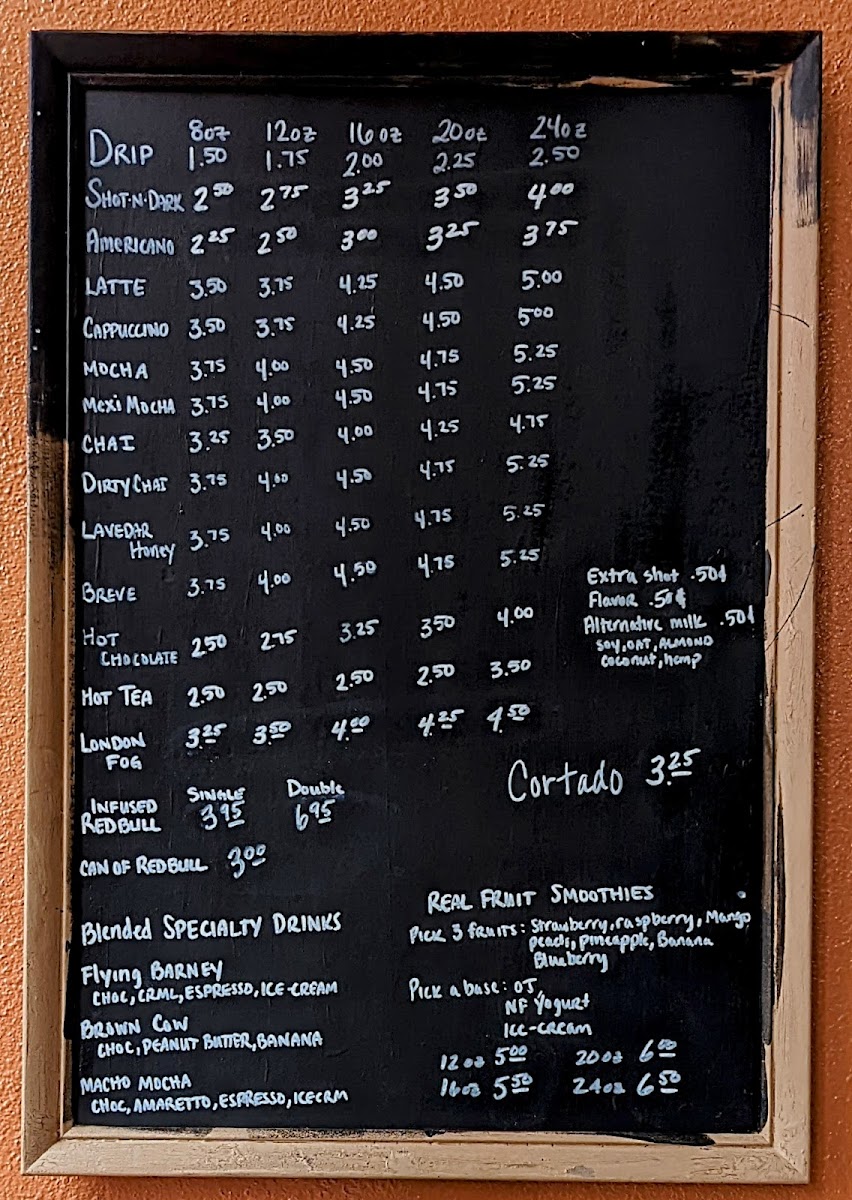 8oz 12oz 16oz 20oz 24oz
DRIP 1.50 1.75 2.00 2.25 2.50
SHOT-N-DARK 2.50 2.75 3.25 3.50 4.00
AMERICANO 2.25 2.50 3.00 3.25 3.75
LATTE 3.50 3.75 4.25 4.50 5.00
CAPPUCCINO 3.50 3.75 4.25 4.50 5.00
MOCHA 3.75 4.00 4.50 4.75 5.25
MEXI MOCHA 3.75 4.00 4.50 4.75 5.25
CHAI 3.25 3.50 4.00 4.25 4.75
DIRTY CHAI 3.75 4.00 4.50 4.75 5.25
LAVEDAR
Honey 3.75 4.00 4.50 4.75 5.25
BREVE 3.75 4.00 4.50 4.75 5.25
HOT
CHOCOLATE 2.50 2.75 3.25 3.50 4.00
HOT TEA 2.50 2.50 2.50 2.50 3.50
LONDON
FOG 3.25 3.50 4.00 4.25 4.50
Extra shot .50¢
Flavor .50¢
Alternative milk .50¢
SOY, OAT, ALMOND
coconut, hemp
Cortado 3.25
SINGLE Double
INFUSED
REDBULL 3.95 6.95
CAN OF REDBULL 3.00
Blended SPECIALTY DRINKS
Flying BARNEY
CHOC, CRML, ESPRESSO, ICE-CREAM
BROWN COW
CHOC, PEANUT BUTTER, BANANA
MACHO MOCHA
CHOC, AMARETTO, ESPRESSO, ICECRM
REAL FRUIT SMOOTHIES
Pick 3 fruits: Strawberry, raspberry, Mango
peach, pineapple, Banana
Blueberry
Pick a base: OJ
NF Yogurt
ICE-cream
12oz 5.00 20oz 6.00
16oz 5.50 24oz 6.50